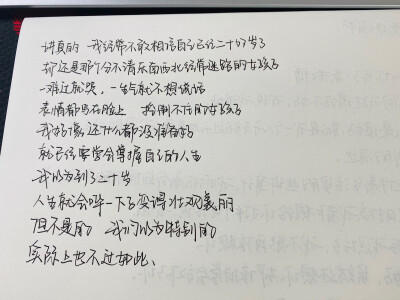 讲真的 我经常不敢相信自己已经二十的岁了
却还是那个分不清东南西北经常迷路的女孩子
一难过就哭，一生气就不想说话
表情都写在脸上 抑制不住的女孩子
我好像还什么都没准备好
就已经要学会掌握自己的人生
我以为到了二十岁
人生就会哗一下子变得壮观美丽
但不是的 我们以为特别的
实际上也不过如此、